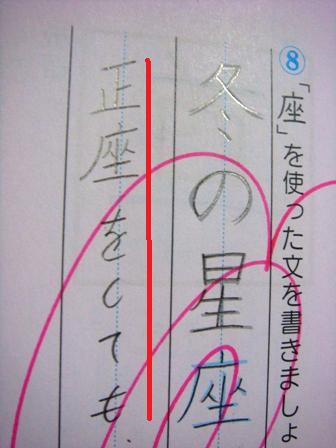 ⑧「座」を使った文を書きましょ
冬の星座
正座をしても